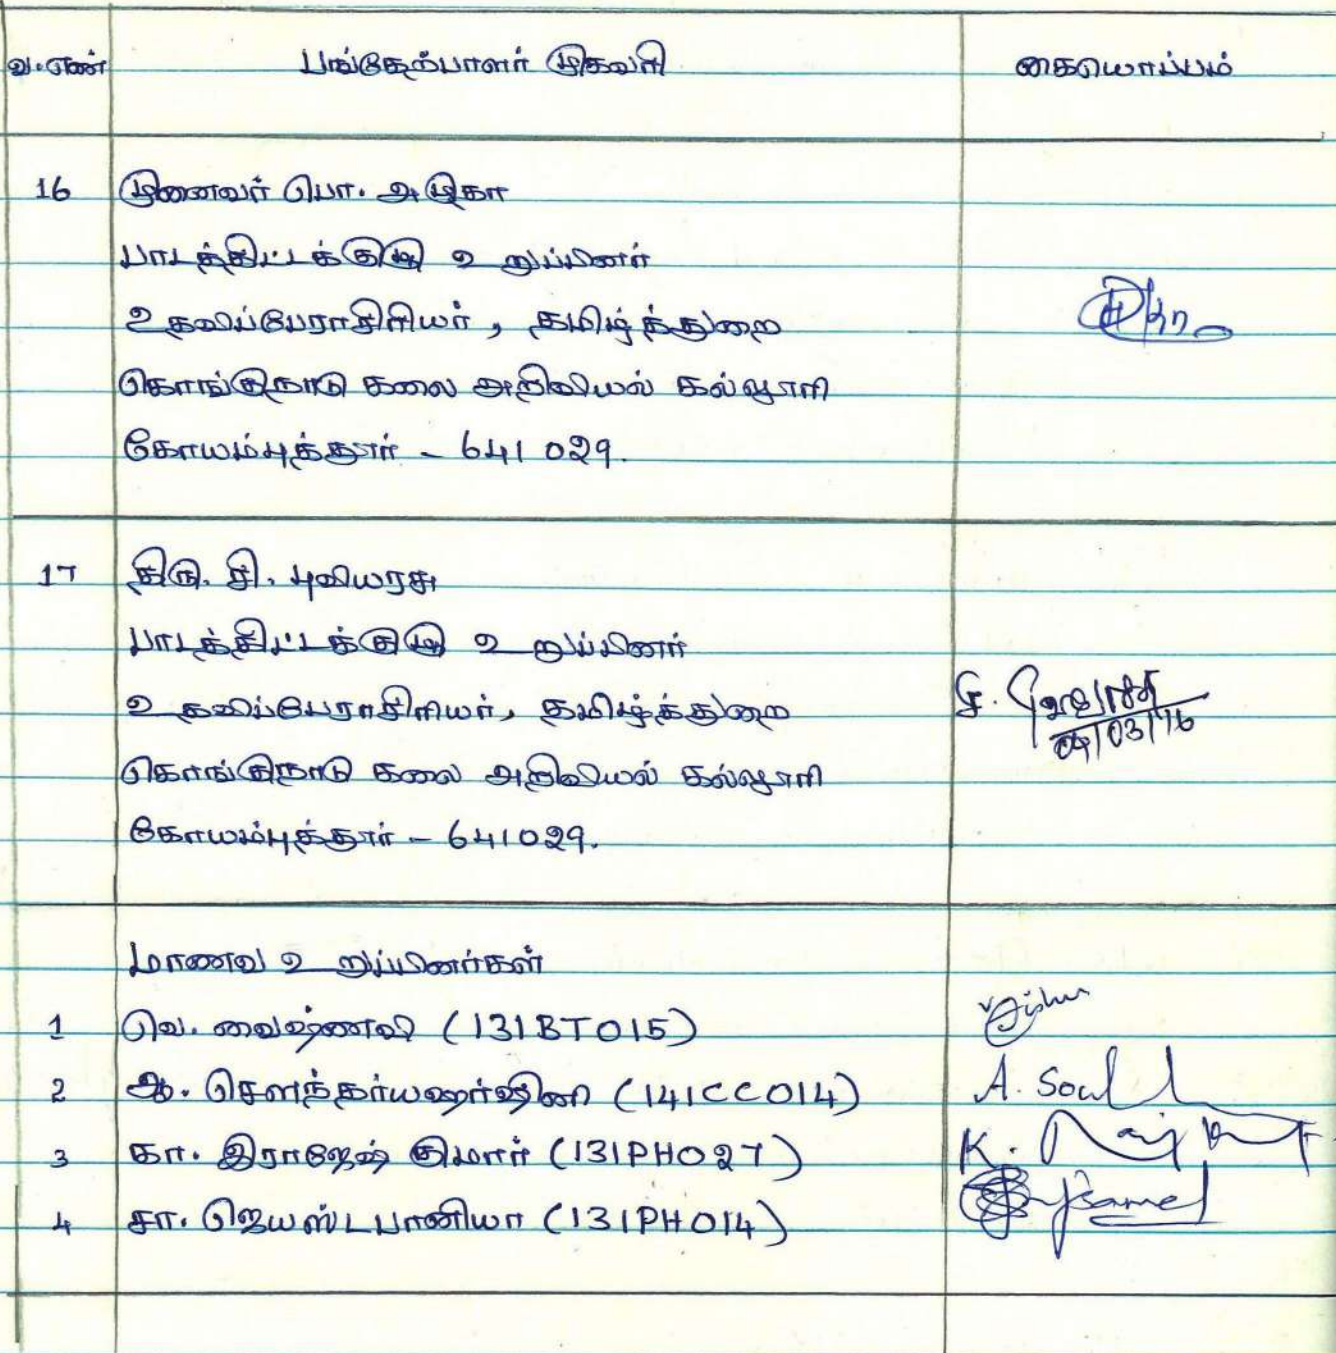 வ.எண் பங்கேற்பாளர் முகவரி கையொப்பம்
16 முனைவர் பொ. அமுகா
பாடத்திட்டக்குழு உறுப்பினர்
உதவிப்பேராசிரியர், தமிழ்த்துறை
கொங்குநாடு கலை அறிவியல் கல்லூரி
கோயம்புத்தூர் - 641 029.
17 திரு. சி. புவியரசு
பாடத்திட்டக்குழு உறுப்பினர்
உதவிப்பேராசிரியர், தமிழ்த்துறை
கொங்குநாடு கலை அறிவியல் கல்லூரி
கோயம்புத்தூர் - 641029.
04/03/16
மாணவ உறுப்பினர்கள்
1 வெ. வைஷ்ணவி (131BT015)
2 ஆ. சௌந்தர்யஹர்ஷினி (141CC014) A. Sou
3 கா. இராஜேஷ் குமார் (131PH027) K.
4 சா. ஜெயஸ்டபானியா (131PH014)